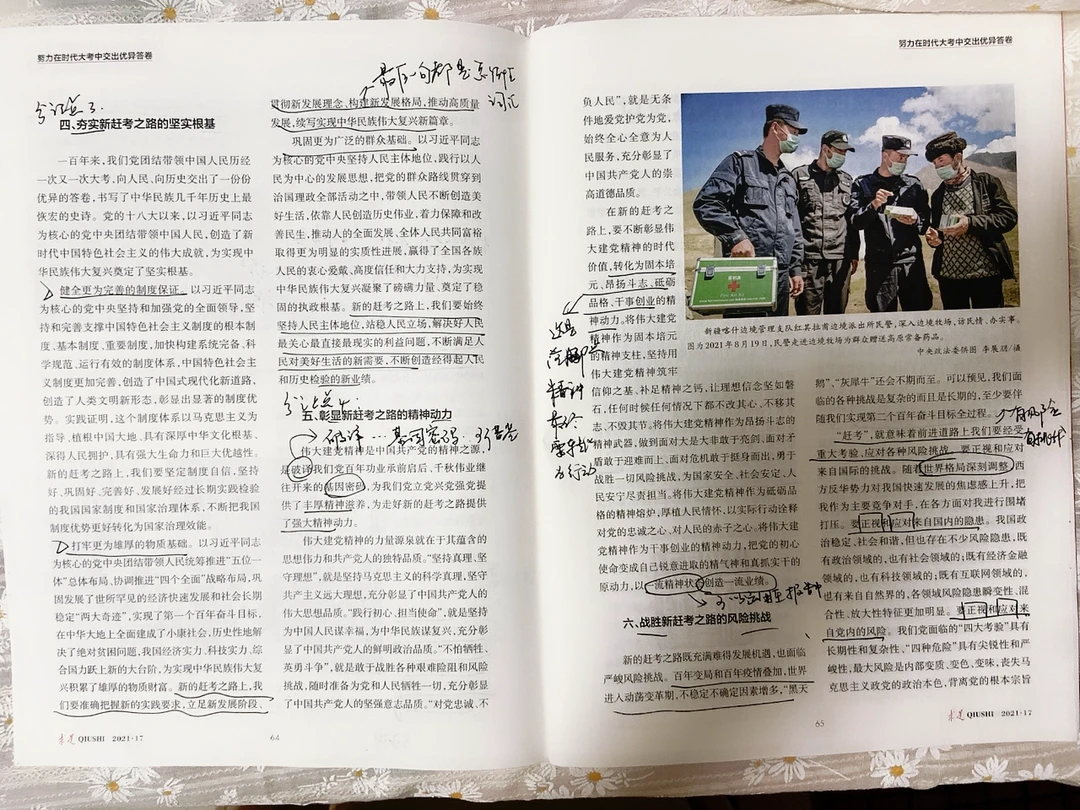 努力在时代大考中交出优异答卷
分论点3
四、夯实新赶考之路的坚实根基
一百年来，我们党团结带领中国人民历经
一次又一次大考，向人民、向历史交出了一份份
优异的答卷，书写了中华民族几千年历史上最
恢宏的史诗。党的十八大以来，以习近平同志
为核心的党中央团结带领中国人民，创造了新
时代中国特色社会主义的伟大成就，为实现中
华民族伟大复兴奠定了坚实根基。
健全更为完善的制度保证。以习近平同志
为核心的党中央坚持和加强党的全面领导，坚
持和完善支撑中国特色社会主义制度的根本制
度、基本制度、重要制度，加快构建系统完备、科
学规范、运行有效的制度体系，中国特色社会主
义制度更加完善，创造了中国式现代化新道路，
创造了人类文明新形态，彰显出显著的制度优
势。实践证明，这个制度体系以马克思主义为
指导、植根中国大地、具有深厚中华文化根基、
深得人民拥护，具有强大生命力和巨大优越性。
新的赶考之路上，我们要坚定制度自信，坚持
好、巩固好、完善好、发展好经过长期实践检验
的我国国家制度和国家治理体系，不断把我国
制度优势更好转化为国家治理效能。
打牢更为雄厚的物质基础。以习近平同志
为核心的党中央团结带领人民统筹推进“五位一
体”总体布局、协调推进“四个全面”战略布局，巩
固发展了世所罕见的经济快速发展和社会长期
稳定“两大奇迹”，实现了第一个百年奋斗目标，
在中华大地上全面建成了小康社会，历史性地解
决了绝对贫困问题，我国经济实力、科技实力、综
合国力跃上新的大台阶，为实现中华民族伟大复
兴积累了雄厚的物质财富。新的赶考之路上，我
们要准确把握新的实践要求，立足新发展阶段、
求是 QIUSHI 2021·17
64
最后一句都是
词汇
贯彻新发展理念、构建新发展格局，推动高质量
发展，续写实现中华民族伟大复兴新篇章。
巩固更为广泛的群众基础。以习近平同志
为核心的党中央坚持人民主体地位，践行以人
民为中心的发展思想，把党的群众路线贯穿到
治国理政全部活动之中，带领人民不断创造美
好生活，依靠人民创造历史伟业，着力保障和改
善民生，推动人的全面发展、全体人民共同富裕
取得更为明显的实质性进展，赢得了全国各族
人民的衷心爱戴、高度信任和大力支持，为实现
中华民族伟大复兴凝聚了磅礴力量、奠定了稳
固的执政根基。新的赶考之路上，我们要始终
坚持人民主体地位，站稳人民立场，解决好人民
最关心最直接最现实的利益问题，不断满足人
民对美好生活的新需要，不断创造经得起人民
和历史检验的新业绩。
分论点4
五、彰显新赶考之路的精神动力
破译…基因密码
伟大建党精神是中国共产党的精神之源，
是破译我们党百年功业承前启后、千秋伟业继
往开来的基因密码，为我们党立党兴党强党提
供了丰厚精神滋养，为走好新的赶考之路提供
了强大精神动力。
伟大建党精神的力量源泉就在于其蕴含的
思想伟力和共产党人的独特品质。“坚持真理、坚
守理想”，就是坚持马克思主义的科学真理，坚守
共产主义远大理想，充分彰显了中国共产党人的
伟大思想品质。“践行初心、担当使命”，就是坚持
为中国人民谋幸福，为中华民族谋复兴，充分彰
显了中国共产党人的鲜明政治品质。“不怕牺牲、
英勇斗争”，就是敢于战胜各种艰难险阻和风险
挑战，随时准备为党和人民牺牲一切，充分彰显
了中国共产党人的坚强意志品质。“对党忠诚、不
努力在时代大考中交出优异答卷
负人民”，就是无条
件地爱党护党为党，
始终全心全意为人
民服务，充分彰显了
中国共产党人的崇
高道德品质。
在新的赶考之
路上，要不断彰显伟
大建党精神的时代
价值，转化为固本培
元、昂扬斗志、砥砺
品格、干事创业的精
神动力。将伟大建党
精神作为固本培元
的精神支柱，坚持用
伟大建党精神筑牢
信仰之基、补足精神之钙，让理想信念坚如磐
石，任何时候任何情况下都不改其心、不移其
志、不毁其节。将伟大建党精神作为昂扬斗志的
精神武器，做到面对大是大非敢于亮剑、面对矛
盾敢于迎难而上、面对危机敢于挺身而出，勇于
战胜一切风险挑战，为国家安全、社会安定、人
民安宁尽责担当。将伟大建党精神作为砥砺品
格的精神熔炉，厚植人民情怀，以实际行动诠释
对党的忠诚之心、对人民的赤子之心。将伟大建
党精神作为干事创业的精神动力，把党的初心
使命变成自己锐意进取的精气神和真抓实干的
原动力，以一流精神状态创造一流业绩。
六、战胜新赶考之路的风险挑战
新的赶考之路既充满难得发展机遇，也面临
严峻风险挑战。百年变局和百年疫情叠加，世界
进入动荡变革期，不稳定不确定因素增多，“黑天
新疆喀什边境管理支队红其拉甫边境派出所民警，深入边境牧场，访民情、办实事。
图为2021年8月19日，民警走进边境牧场为群众赠送高原常备药品。
中央政法委供图 李晨朋/摄
鹅”、“灰犀牛”还会不期而至。可以预见，我们面
临的各种挑战是复杂的而且是长期的，至少要伴
随我们实现第二个百年奋斗目标全过程。
“赶考”，就意味着前进道路上我们要经受
重大考验，应对各种风险挑战。要正视和应对
来自国际的挑战。随着世界格局深刻调整，西
方反华势力对我国快速发展的焦虑感上升，把
我作为主要竞争对手，在各方面对我进行围堵
打压。要正视和应对来自国内的隐患。我国政
治稳定、社会和谐，但也存在不少风险隐患，既
有政治领域的，也有社会领域的；既有经济金融
领域的，也有科技领域的；既有互联网领域的，
也有来自自然界的，各领域风险隐患瞬变性、混
合性、放大性特征更加明显。要正视和应对来
自党内的风险。我们党面临的“四大考验”具有
长期性和复杂性、“四种危险”具有尖锐性和严
峻性，最大风险是内部变质、变色、变味，丧失马
克思主义政党的政治本色，背离党的根本宗旨
65
求是 QIUSHI 2021·17